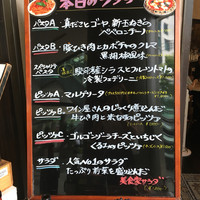 本日のランチ
パスタA 真だことゴーヤ、新玉ねぎの
ペペロンチーノ
パスタB 豚ひき肉とカボチャのクレマ
黒胡椒風味
スペシャル
パスタ 駿河湾シラスとフルーツトマトの
冷製フェデリーニ
ピッツァA マルゲリータ
ピッツァB ワイン屋さんのじっくり煮込んだ
牛ひき肉と米なすのピッツァ
ピッツァC ゴルゴンゾーラチーズといちじく
くるみのピッツァ
サラダ 人気No.1のサラダ
たっぷり若菜を盛り込んだ
美食家サラダ